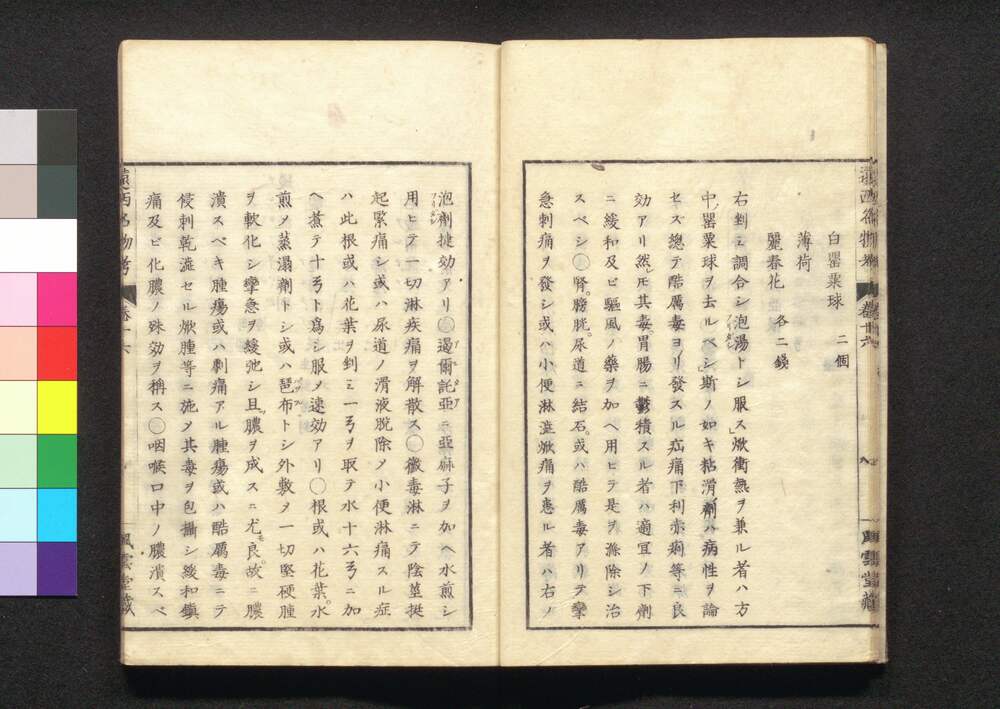 白罌粟球 二個
薄荷
麗春花 各二錢
右剉ミ調合シ泡湯トシ服ス焮衝熱ヲ兼ル者ハ方
中ノ罌粟球ヲ去ルベシ」斯ノ如キ粘滑ノ劑ハ病性ヲ論
セズ總テ酷厲毒ヨリ發スル疝痛下利赤痢等ニ良
効アリ然𪜈其毒胃腸ニ鬱積スル者ハ適宜ノ下劑
ニ緩和及ビ驅風ノ藥ヲ加ヘ用ヒテ是ヲ滌除シ治
スベシ◯腎。膀胱。尿道ニ結石。或ハ酷厲毒アリテ攣
急刺痛ヲ發シ或ハ小便淋瀝焮痛ヲ患ル者ハ右ノ
泡劑捷効アリ◯遏爾託亞ニ亞麻子ヲ加ヘ水煎シ
用ヒテ一切淋疾痛ヲ解散ス◯黴毒淋ニテ陰莖挺
起緊痛シ或ハ尿道ノ滑液脱除メ小便淋痛スル症
ハ此根或ハ花葉ヲ剉ミ一弓ヲ取テ水十六弓ニ加
ヘ煮テ十弓ト爲シ服メ速効アリ◯根或ハ花葉。水
煎メ蒸溻劑トシ或ハ琶布トシ外敷メ一切堅硬腫
ヲ軟化シ攣急ヲ緩弛シ且ツ膿ヲ成スニ尤モ良。故ニ膿
潰スベキ腫瘍或ハ刺痛アル腫瘍或ハ酷厲毒ニテ
侵刺乾瀝セル焮腫等ニ施メ其毒ヲ包攝シ緩和鎭
痛及ビ化膿ノ殊効ヲ稱ス◯咽喉口中ノ膿潰スベ
遠西名物考 卷十六
風雲堂藏